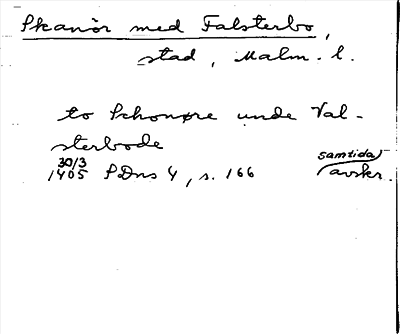 Skanör med Falsterbo,
stad, Malm. l.
to Schonøre unde Val-
sterbode
30/3
1405 SDns 4, s. 166
samtida
avskr.